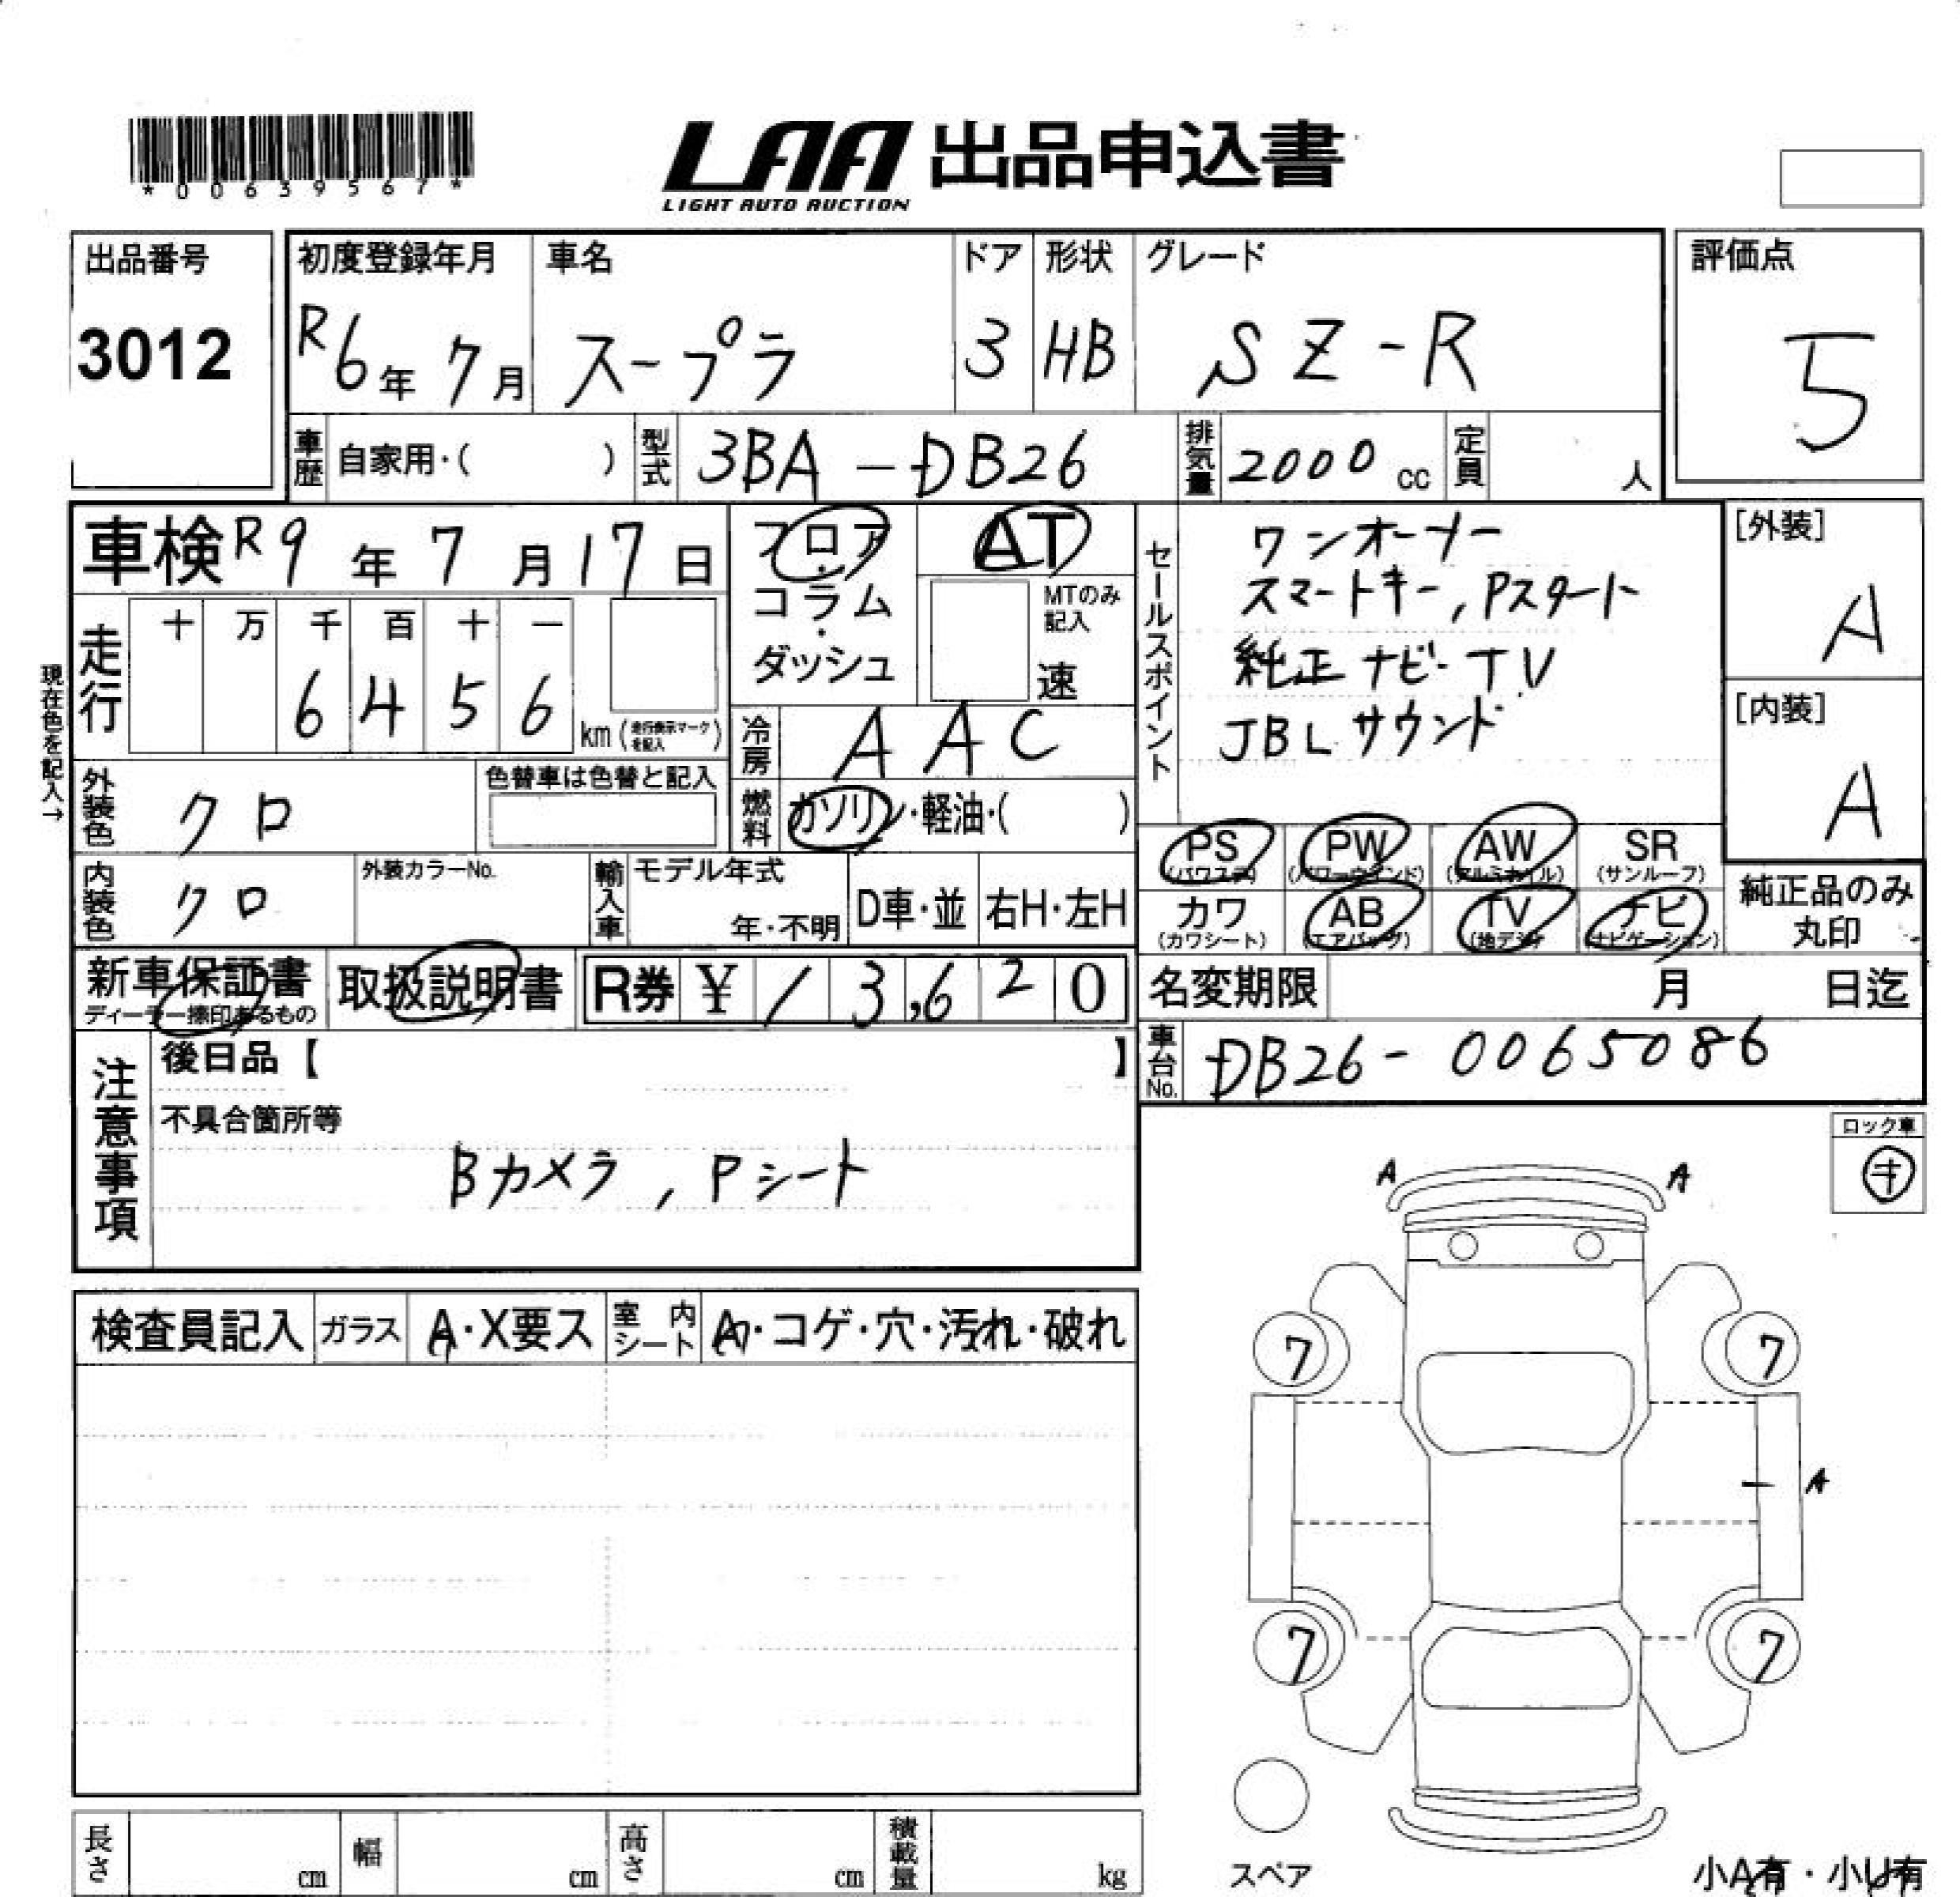 *00639567*
LAA 出品申込書
LIGHT AUTO AUCTION
出品番号
3012
初度登録年月
R6年 7月
車名
スープラ
ドア
3
形状
HB
グレード
SZ-R
評価点
5
車歴 自家用・( )
型式 3BA-DB26
排気量 2000 cc
定員 人
車検 R9年 7月 17日
フロア・コラム・ダッシュ
AT
MTのみ記入
速
走行
十 万 千 百 十 一
6 4 5 6
km (走行表示マークを記入)
現在色を記入→
冷房 AAC
外装色 クロ
色替車は色替と記入
燃料 ガソリン・軽油・( )
内装色 クロ
外装カラーNo.
輸入車
モデル年式
年・不明
D車・並
右H・左H
セールスポイント
ワンオーナー
スマートキー, Pスタート
純正ナビ・TV
JBLサウンド
[外装]
A
[内装]
A
PS (パワステ)
PW (パワーウインド)
AW (アルミホイル)
SR (サンルーフ)
カワ (カワシート)
AB (エアバッグ)
TV (地デジ)
ナビ (ナビゲーション)
純正品のみ
丸印
新車保証書
ディーラー捺印あるもの
取扱説明書
R券 ¥13,620
名変期限 月 日迄
車台No. DB26-0065086
注意事項
後日品【 】
不具合箇所等
Bカメラ, Pシート
ロック車
キ
検査員記入
ガラス A・X要ス
室内シート
・コゲ・穴・汚れ・破れ
A A
7 7
A
7 7
スペア
小A有・小U有
長さ cm
幅 cm
高さ cm
積載量 kg